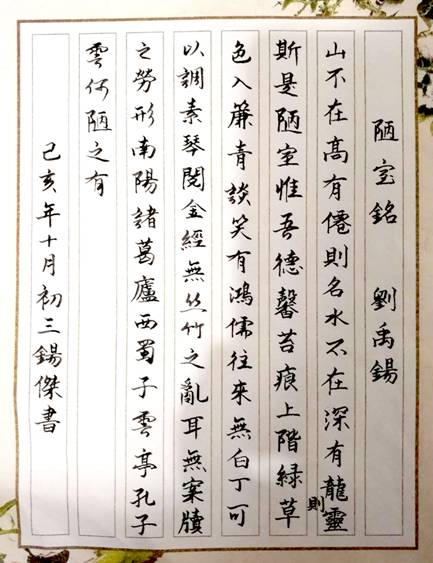 陋室銘 劉禹錫
山不在高有僊則名水不在深有龍則靈
斯是陋室惟吾德馨苔痕上階緑草
色入簾青談笑有鴻儒往來無白丁可
以調素琴閱金經無丝竹之亂耳無案牘
之勞形南陽諸葛廬西蜀子雲亭孔子
雲何陋之有
己亥年十月初三錫傑書